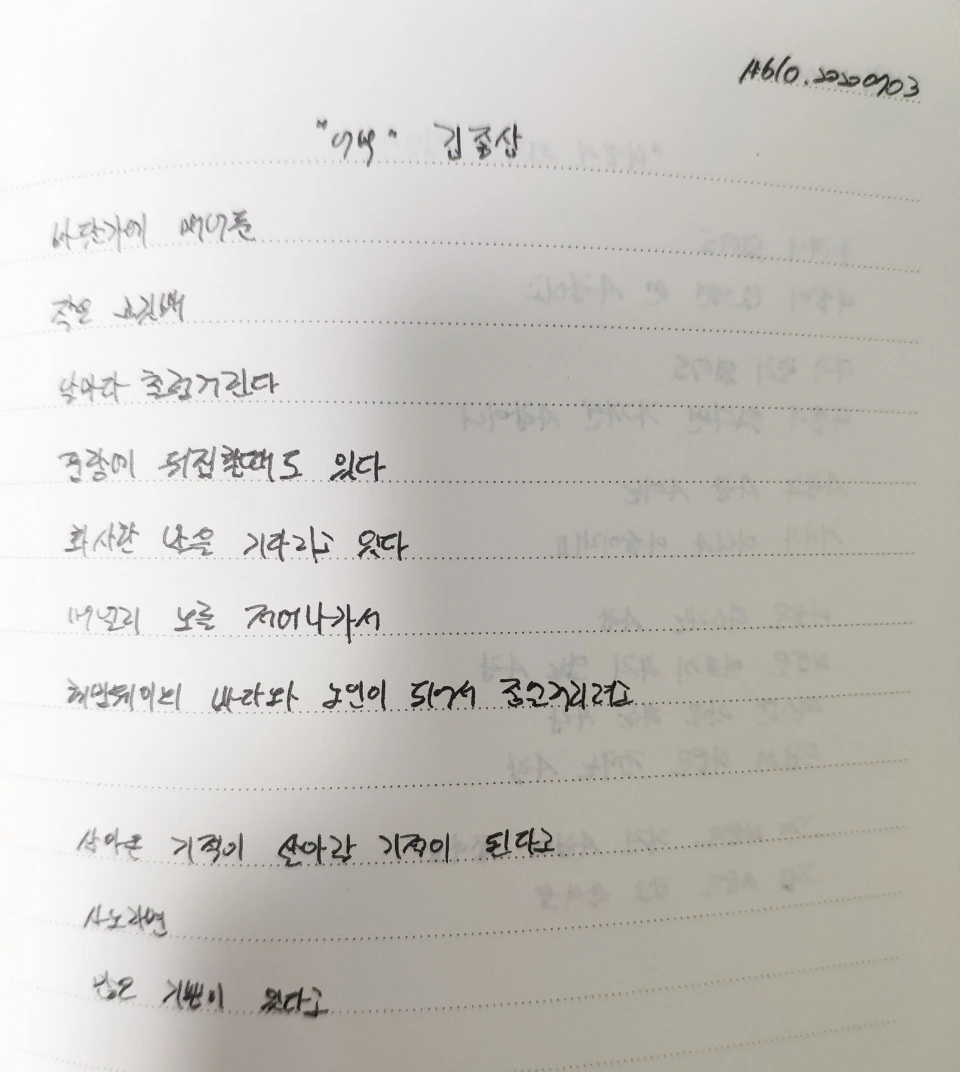 A610.20200703
"어부" 김종삼
바닷가에 매어둔
작은 고깃배
날마다 출렁거린다
풍랑에 뒤집힐때도 있다
화사한 날을 기다리고 있다
머널리 노를 저어나가서
헤밍웨이의 바다와 노인이 되어서 중얼거리려고
살아온 기적이 살아갈 기적이 된다고
사노라면
많은 기쁨이 있다고